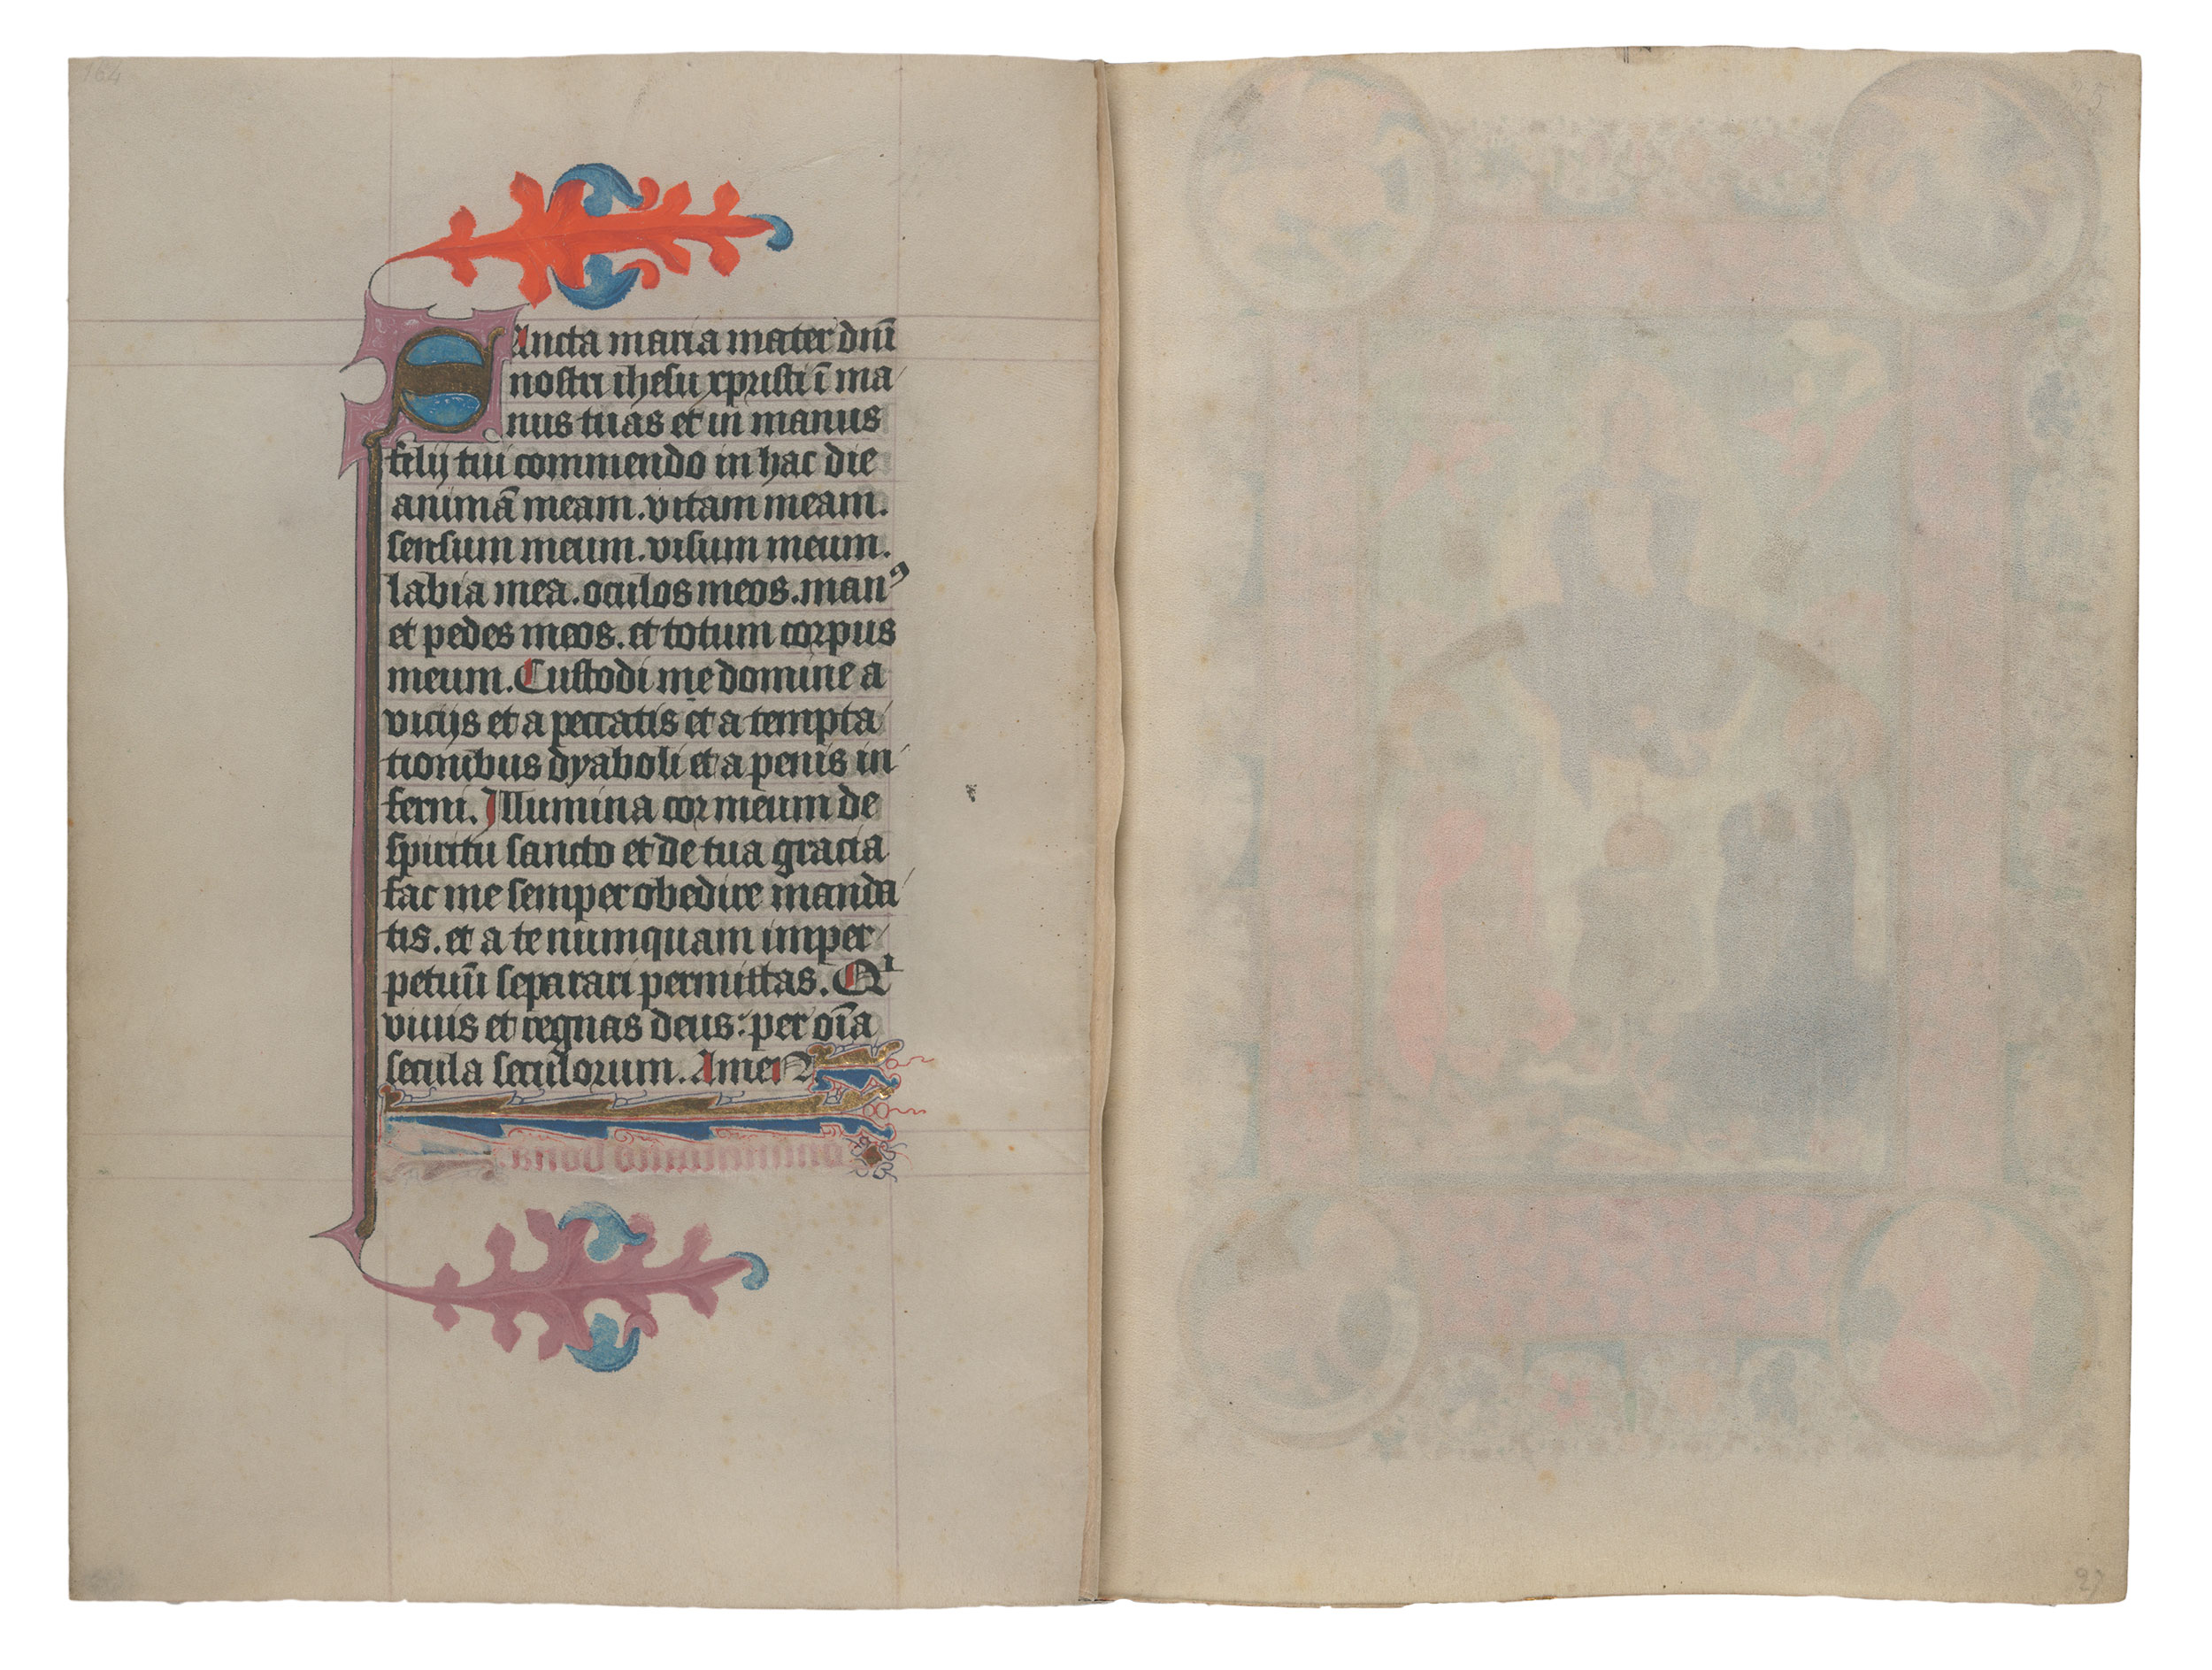 164
SAncta maria mater dnī
nostri ihesu xpristi ī ma
nus tuas et in manus
filij tui commendo in hac die
animā meam. vitam meam.
sensum meum. visum meum.
labia mea. oculos meos. manꝰ
et pedes meos. et totum corpus
meum. Custodi me domine a
vicijs et a peccatis et a tempta
tionibus dyaboli et a penis in
ferni. Illumina cor meum de
spiritu sancto et de tua gracia
fac me semper obedire manda
tis. et a te numquam imper
petuū separari permittas. Qi
viuis et regnas deus: per oīa
secula seculorum. AmeN
27